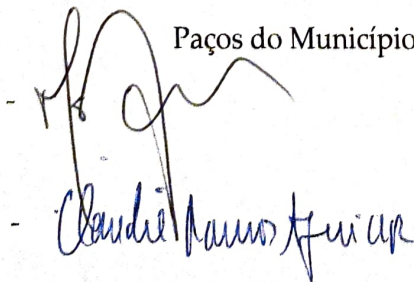 Paços do Município
-
- Claudia Ramos Aguiar